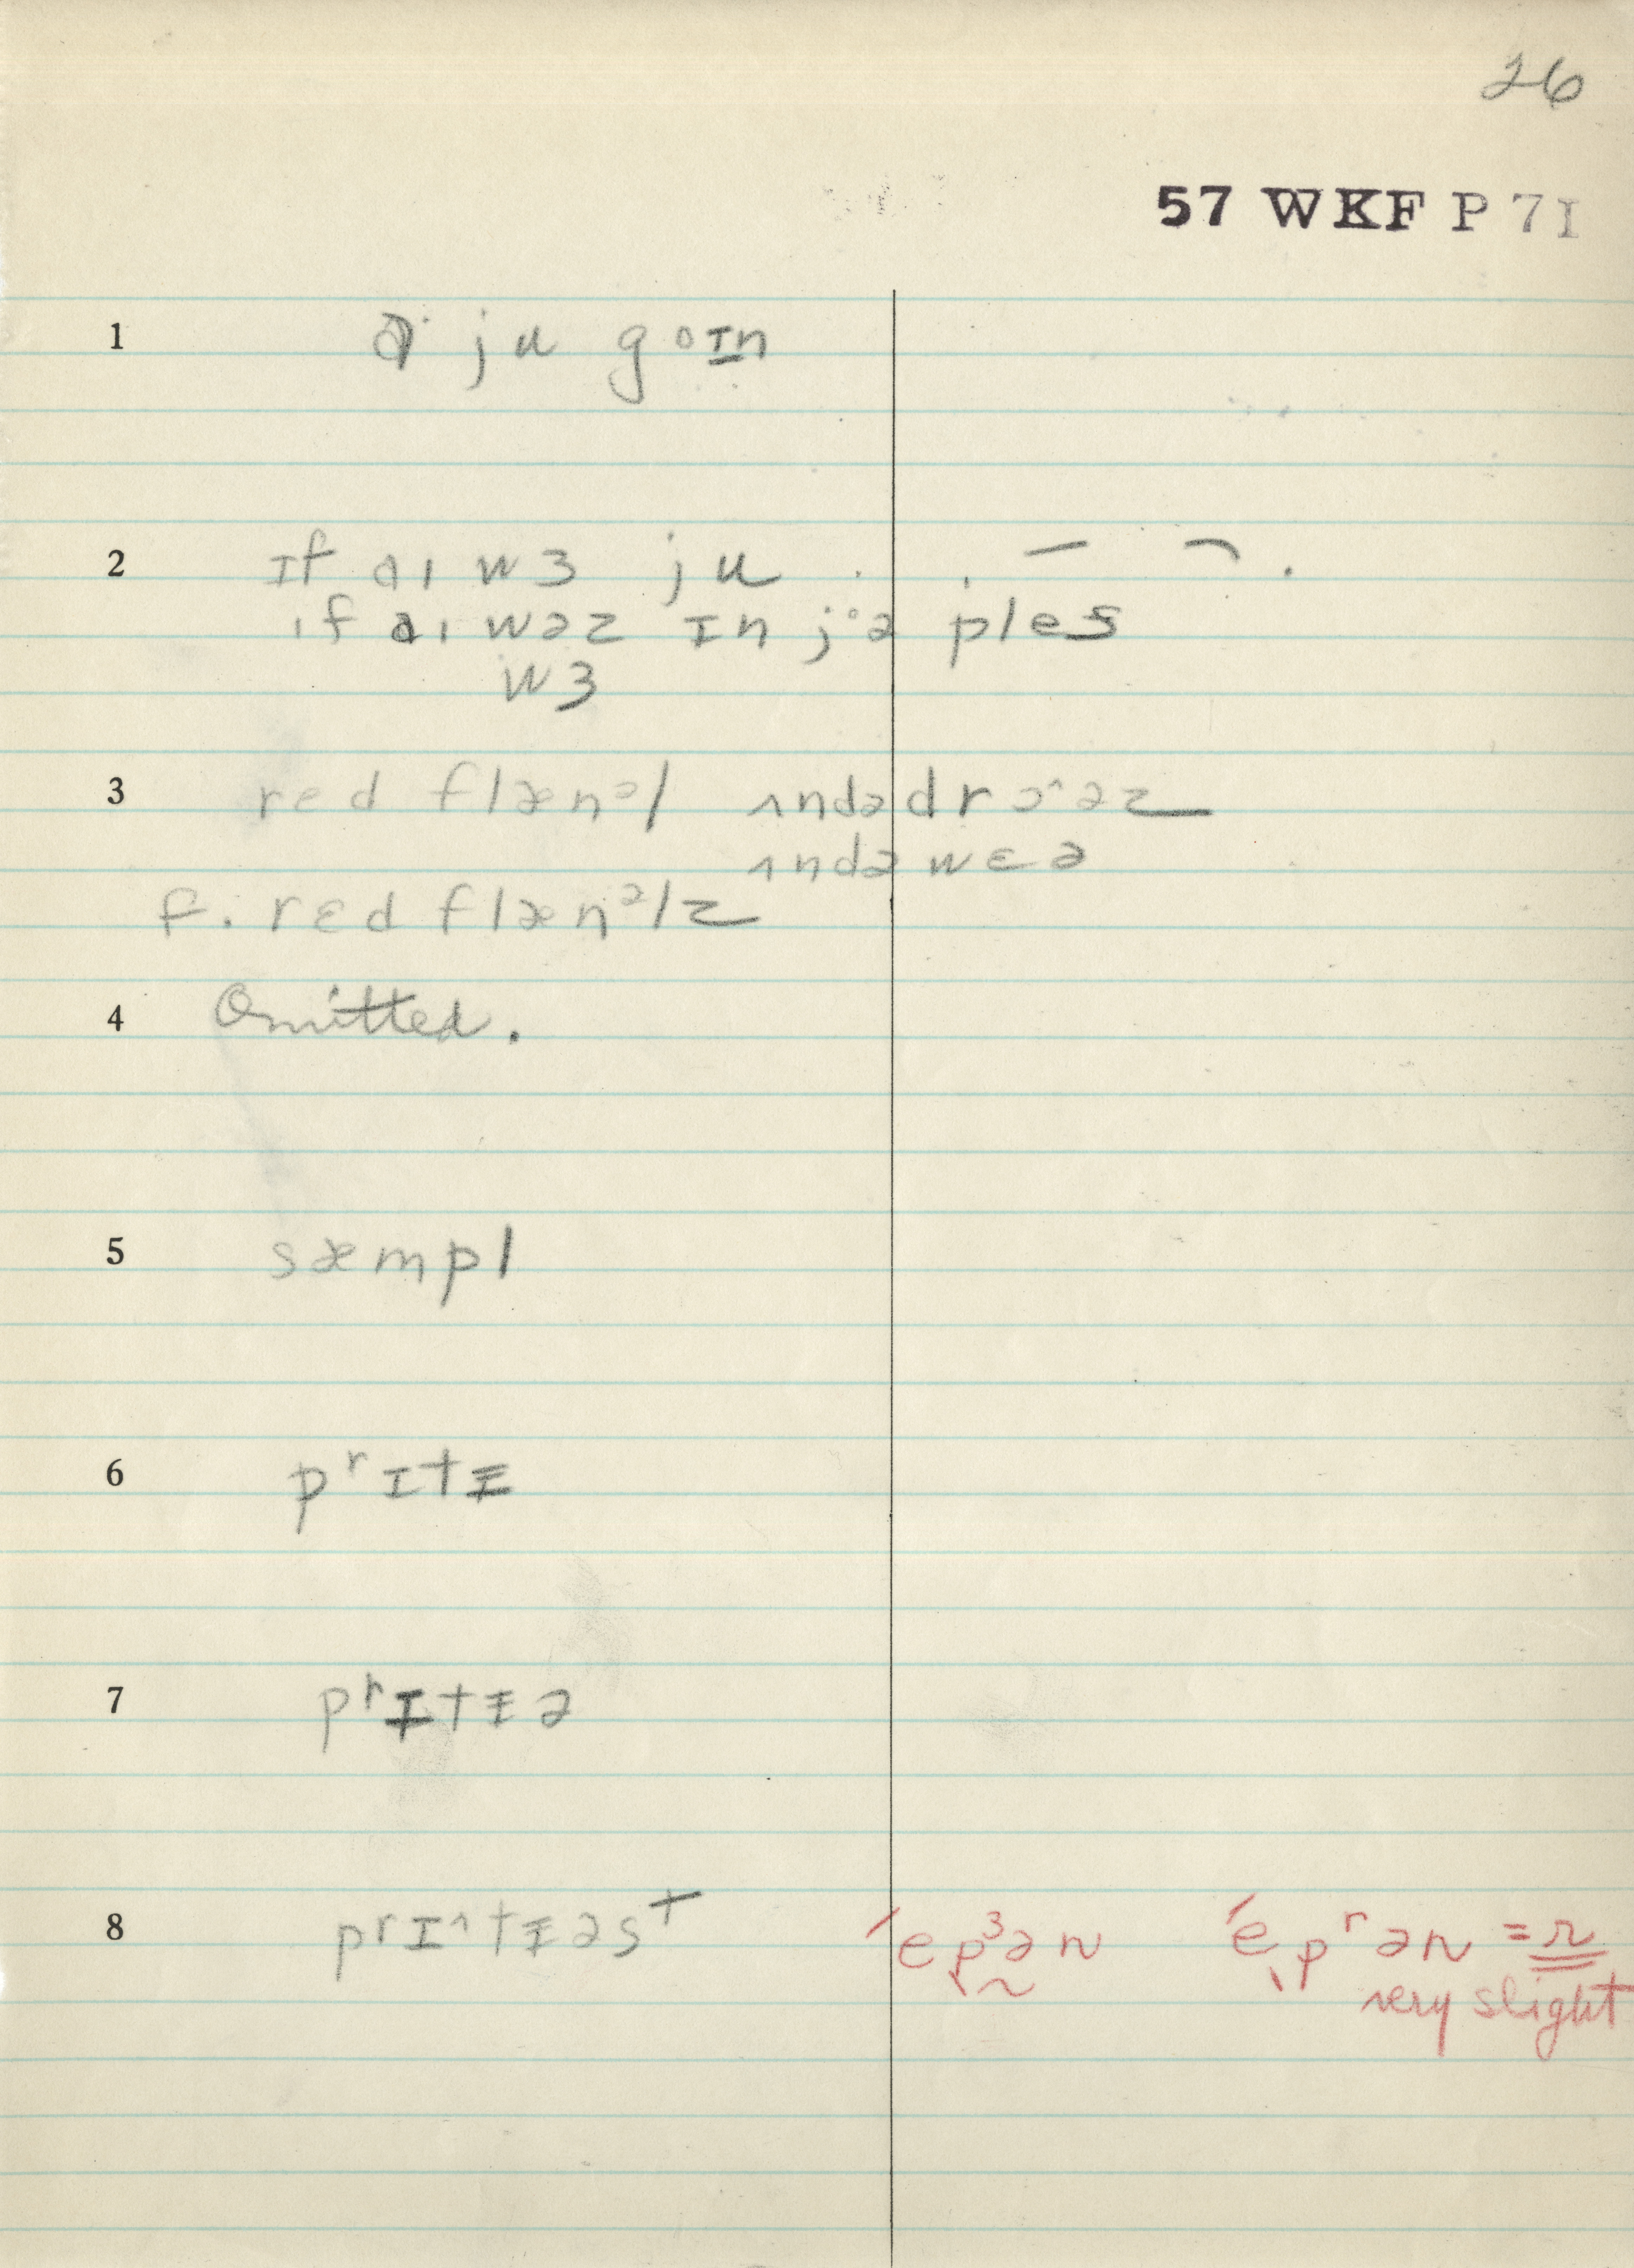 26
57 WKF P 7I
1 ju goɪn
2 ɪf aɪ wɜ ju
ɪf aɪ wəz ɪn jᵒə ples
wɜ
3 red flænᵊl ʌndədrɔˆəz
ʌndəwɛə
f. rɛd flænᵊlz
4 Omitted.
5 sæmpl
6 pʳɪtɪ̵
7 pʳɪtɪ̵ə
8 prɪ^tɪ̵əst ˊepᶾən ˊepʳən = r
very slight